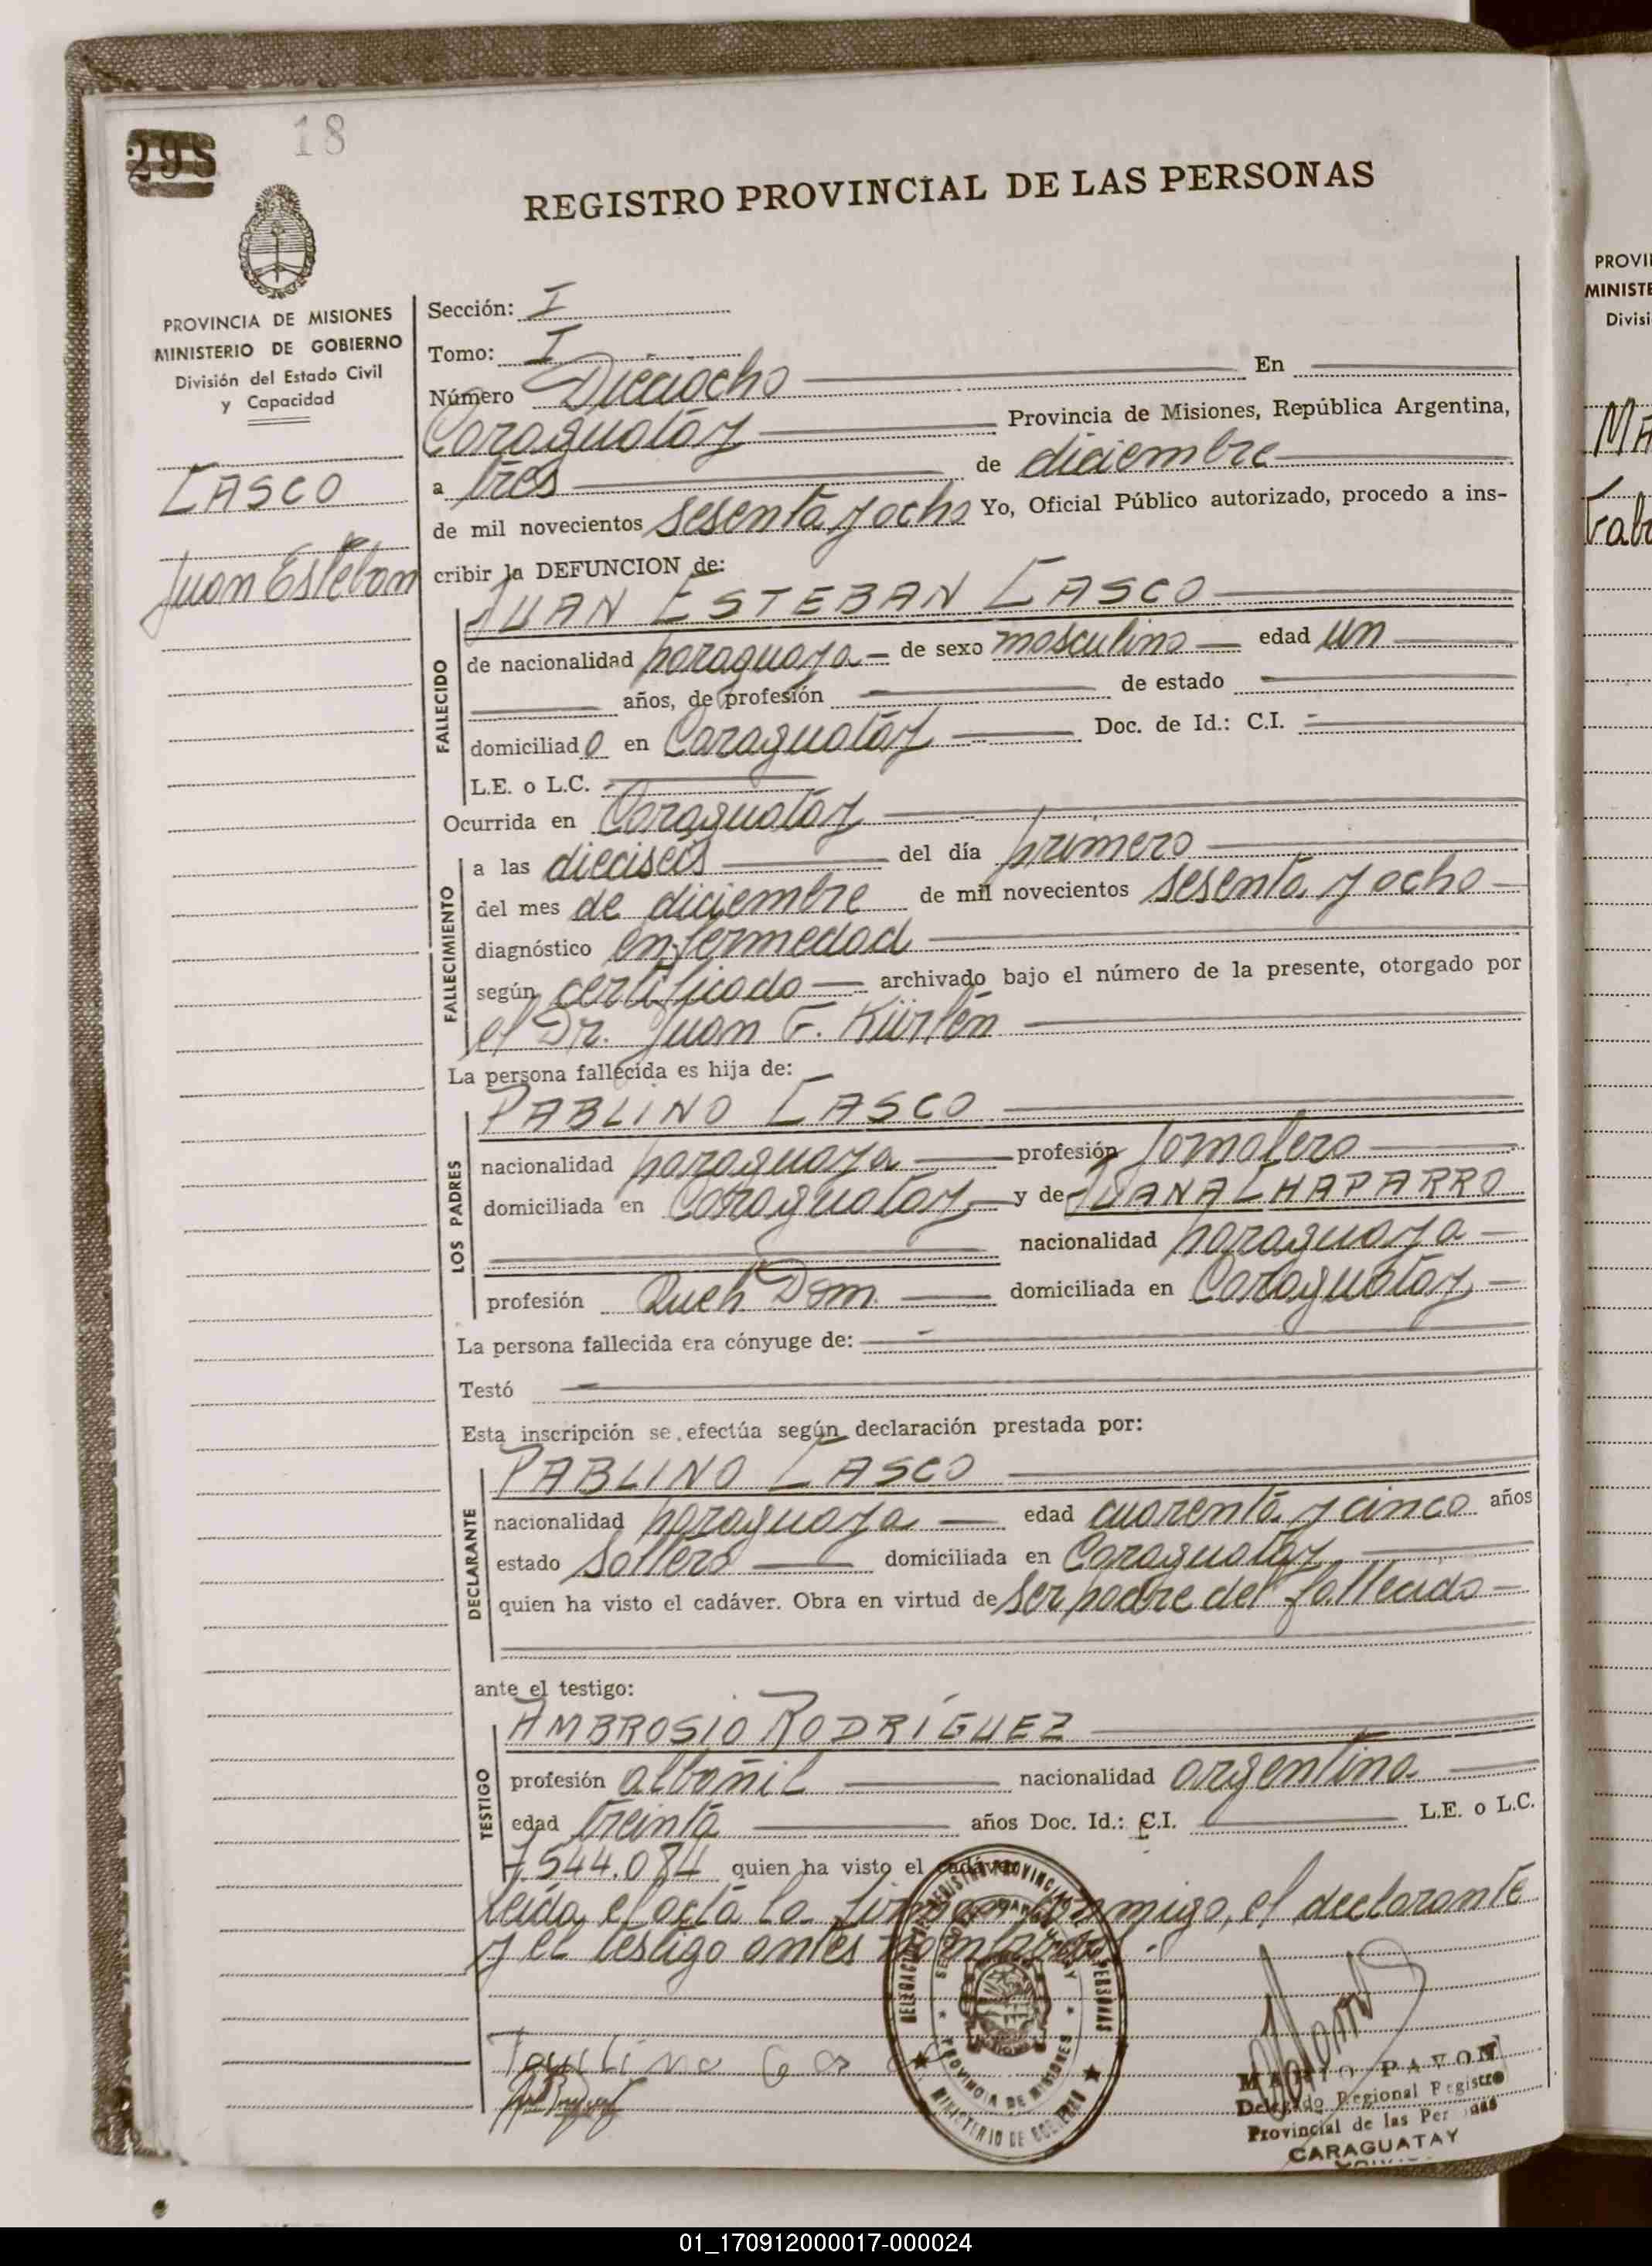 298
18
REGISTRO PROVINCIAL DE LAS PERSONAS
PROVINCIA DE MISIONES
MINISTERIO DE GOBIERNO
División del Estado Civil
y Capacidad
CASCO
Juan Esteban
Sección: I
Tomo: I
Número Dieciocho En
Caraguatáy Provincia de Misiones, República Argentina,
a tres de diciembre
de mil novecientos sesenta y ocho Yo, Oficial Público autorizado, procedo a ins-
cribir la DEFUNCION de:
JUAN ESTEBAN CASCO
FALLECIDO
de nacionalidad paraguaya de sexo masculino edad un
años, de profesión de estado
domiciliado en Caraguatáy Doc. de Id.: C.I.
L.E. o L.C.
Ocurrida en Caraguatáy
FALLECIMIENTO
a las dieciseis del día primero
del mes de diciembre de mil novecientos sesenta y ocho
diagnóstico enfermedad
según certificado archivado bajo el número de la presente, otorgado por
el Dr. Juan F. Kürlén
La persona fallecida es hija de:
LOS PADRES
PABLINO CASCO
nacionalidad paraguaya profesión Jornalero
domiciliada en Caraguatay y de JUANA CHAPARRO
nacionalidad paraguaya
profesión Queh Dom. domiciliada en Caraguatay
La persona fallecida era cónyuge de:
Testó
Esta inscripción se efectúa según declaración prestada por:
DECLARANTE
PABLINO CASCO
nacionalidad paraguaya edad cuarenta y cinco años
estado Soltero domiciliada en Caraguatay
quien ha visto el cadáver. Obra en virtud de ser padre del fallecido
ante el testigo:
TESTIGO
AMBROSIO RODRÍGUEZ
profesión albañil nacionalidad argentina
edad treinta años Doc. Id.: C.I. L.E. o L.C.
7.544.084 quien ha visto el cadáver
Leída el acta la firman conmigo, el declarante
y el testigo antes nombrado.
DELEGACION REGISTRO PROVINCIAL DE LAS PERSONAS
PROVINCIA DE MISIONES
MINISTERIO DE GOBIERNO
MARIO PAVON
Delegado Regional Registro
Provincial de las Personas
CARAGUATAY
PROVI
MINISTE
Divisi
MA
Fab
01_170912000017-000024